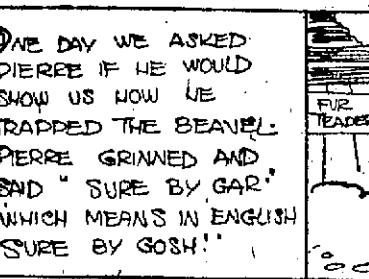 ONE DAY WE ASKED
PIERRE IF HE WOULD
SHOW US HOW HE
TRAPPED THE BEAVER.
PIERRE GRINNED AND
SAID " SURE BY GAR"
WHICH MEANS IN ENGLISH
"SURE BY GOSH!"
FUR
TRADER